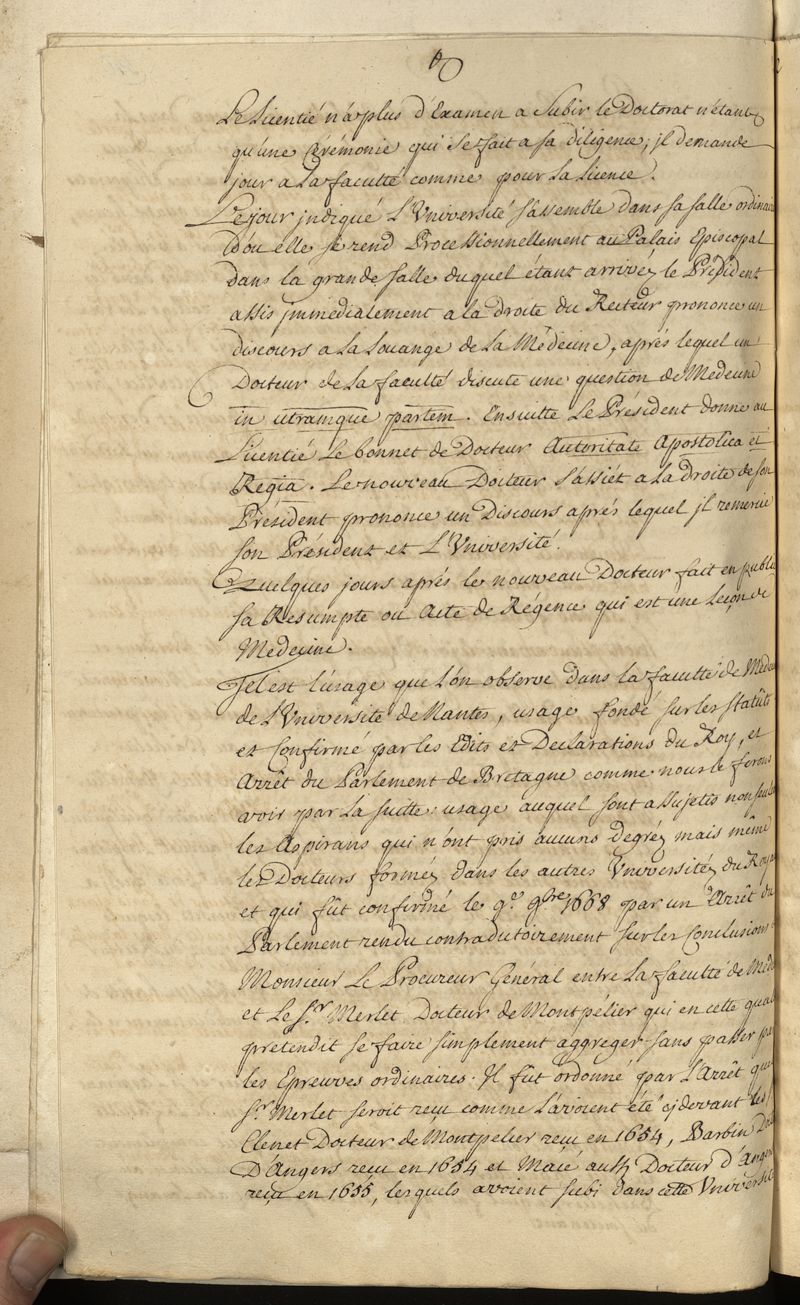 Le Licentié n'a plus d'Examen a Subir le Doctorat n'étant
qu'une Cérémonie qui se fait a sa diligence; jl demande
jour a La faculté comme pour La Licence.
Le jour jndiqué L'Vniversité s'assemble dans sa salle ordinai
D'où elle se rend Processionnellement au Palais Episcopal
dans la grande salle duquel étant arrivéz le Président
assis jmmédiatement a la droite du Recteur prononce un
discours a La Louange de La Médecine, aprés lequel un
Docteur de La faculté discute une question de Médecine
in utramque partem. Ensuitte Le Président donne au
Licentié Le bonnet de Docteur Autoritate Apostolica et
Regia. Le nouveau Docteur s'assiét a la droite de son
Président prononce un Discours aprés lequel jl remercie
son Président et L'Vniversité.
Quelques jours aprés le nouveau Docteur fait en publi
sa Resumpte ou Acte de Régence qui est une Leçon de
Médecine.
Tel est l'usage que l'ón observe dans la faculté de Médec
de L'Vniversité de Nantes, usage fondé sur les Statûts
et Confirmé par les Edits et Declarations du Roy, et
Arrêt du Parlement de Bretagne comme nous le ferons
avoir par la suitte: usage auquel sont assujetis non seule
les Aspirans qui n'ónt pris aucuns degréz mais même
les Docteurs forméz dans les autres Vniversitéz du Roy
et qui fût confirmé le 9.e 9bre 1668 par un Arrêt du
Parlement rendu contradictoirement sur les Conclusions
Monsieur Le Procureur Général entre La faculté de Méde
et Le S.r Merlet Docteur de Montpélier qui en cette quali
prétendit se faire simplement aggreger sans passer pa
les Epreuves ordinaires. Il fût ordonné par L'Arrêt que
S.r Merlet seroit reçu comme L'avoient été cj devant les S
Clenet Docteur de Montpelier reçu en 1654, Barbin Doct
D'Angers reçu en 1654 et Macé aussj Docteur d'Anger
reçu en 1655, lesquels avoient subi dans cette Vniversit